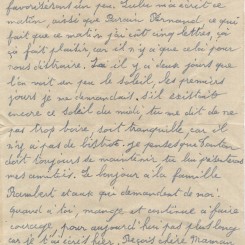 favoriseront un peu. Lulu m'a écrit ce
matin, aussi que Fernand ce qui
fait que ce matin j'ai eût cinq lettres, çà
çà fait plaisir, car il n'y a que celà pour
vous distraire. Là il y a deux jours que
l'on voit un peu le soleil, les premiers
jours je me demandait s'il existait
encore ce soleil du midi, tu me dit de ne
pas trop boire, soit tranquille, car il
n'y a pas de bistrot. Je pense que
doit toujours se maintenir tu lui présenteras
mes amitiés. Le bonjour à la famille
Rambert et aux qui demandent de moi.
Quand à toi, mange, et continue à faire
courage, pour aujourd'hui pas plus long
car je t'ai écrit hier. Reçois chère Maman